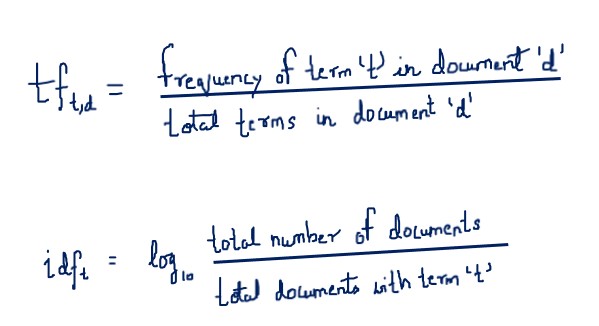 tf_t,d = frequency of term 't' in document 'd' / total terms in document 'd'
idf_t = log_10 total number of documents / total documents with term 't'